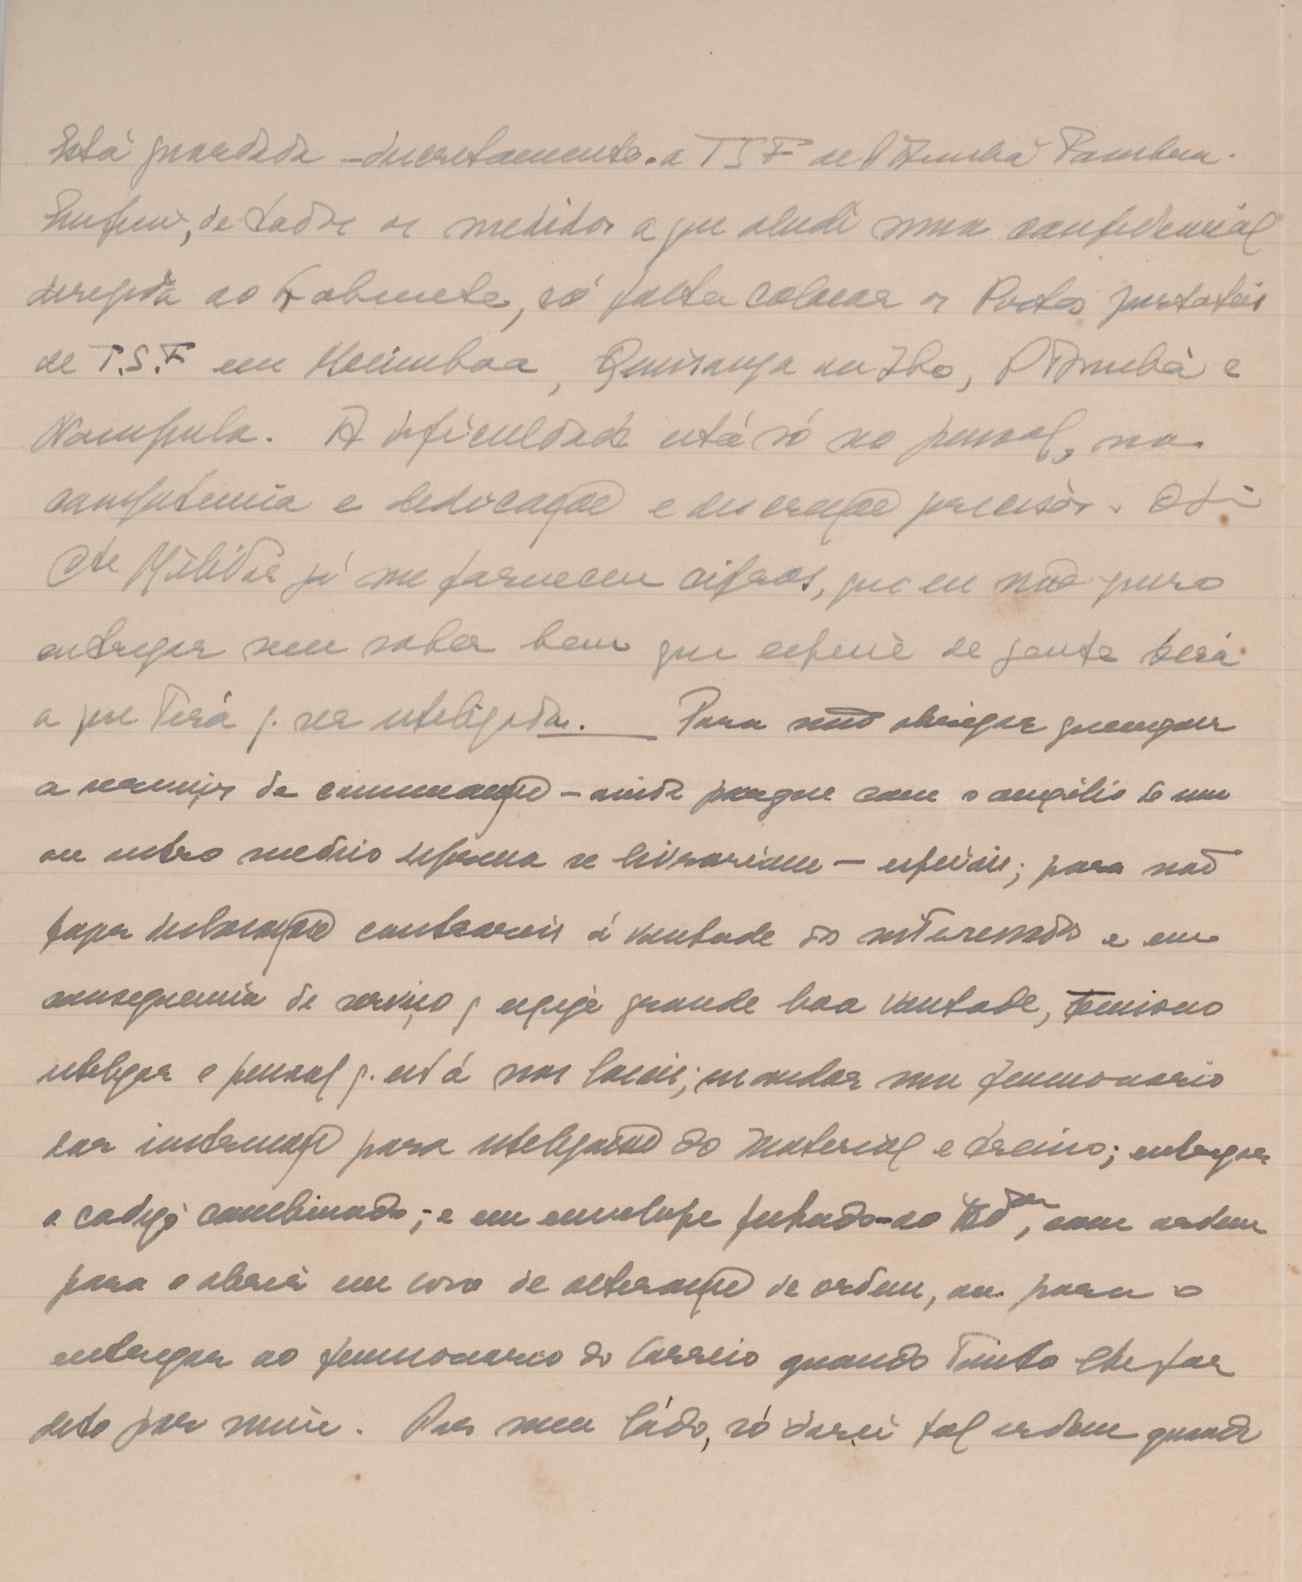 Está guardada - discretamente. a TSF de P. Amelia Tambem.
Emfim, de todas as medidas a que aludi numa confidencial
dirigida ao Gabinete, só falta colocar os Postos portateis
de T.S.F em Mocimboa, Quissanga ou Ibo, P. Amelia e
Nampula. A dificuldade está só no pessoal, na
competencia e dedicação e discreção precisas. O
Cte Militar já me forneceu cifras, que eu não quero
entregar sem saber bem que especie de gente será
a que terá q. ser utilizada. Para não obrigar quemquer
a serviços de comunicação - ainda porque com o auxilio de um
ou outro medico se livrariam - especiais; para não
fazer deslocações contrarias á vontade dos interessados e em
consequencia de serviço q exige grande boa vontade, tenciono
utilizar o pessoal q. está nos locais; mandar um funcionario
dar instrução para utilização do material e treino; entregar
o codigo combinado; e em envelope fechado - ao, com ordem
para o abrir em caso de alteração de ordem, ou para o
entregar ao funcionario do Correio quando tanto lhe for
dito por mim. Por meu lado, só darei tal ordem quando